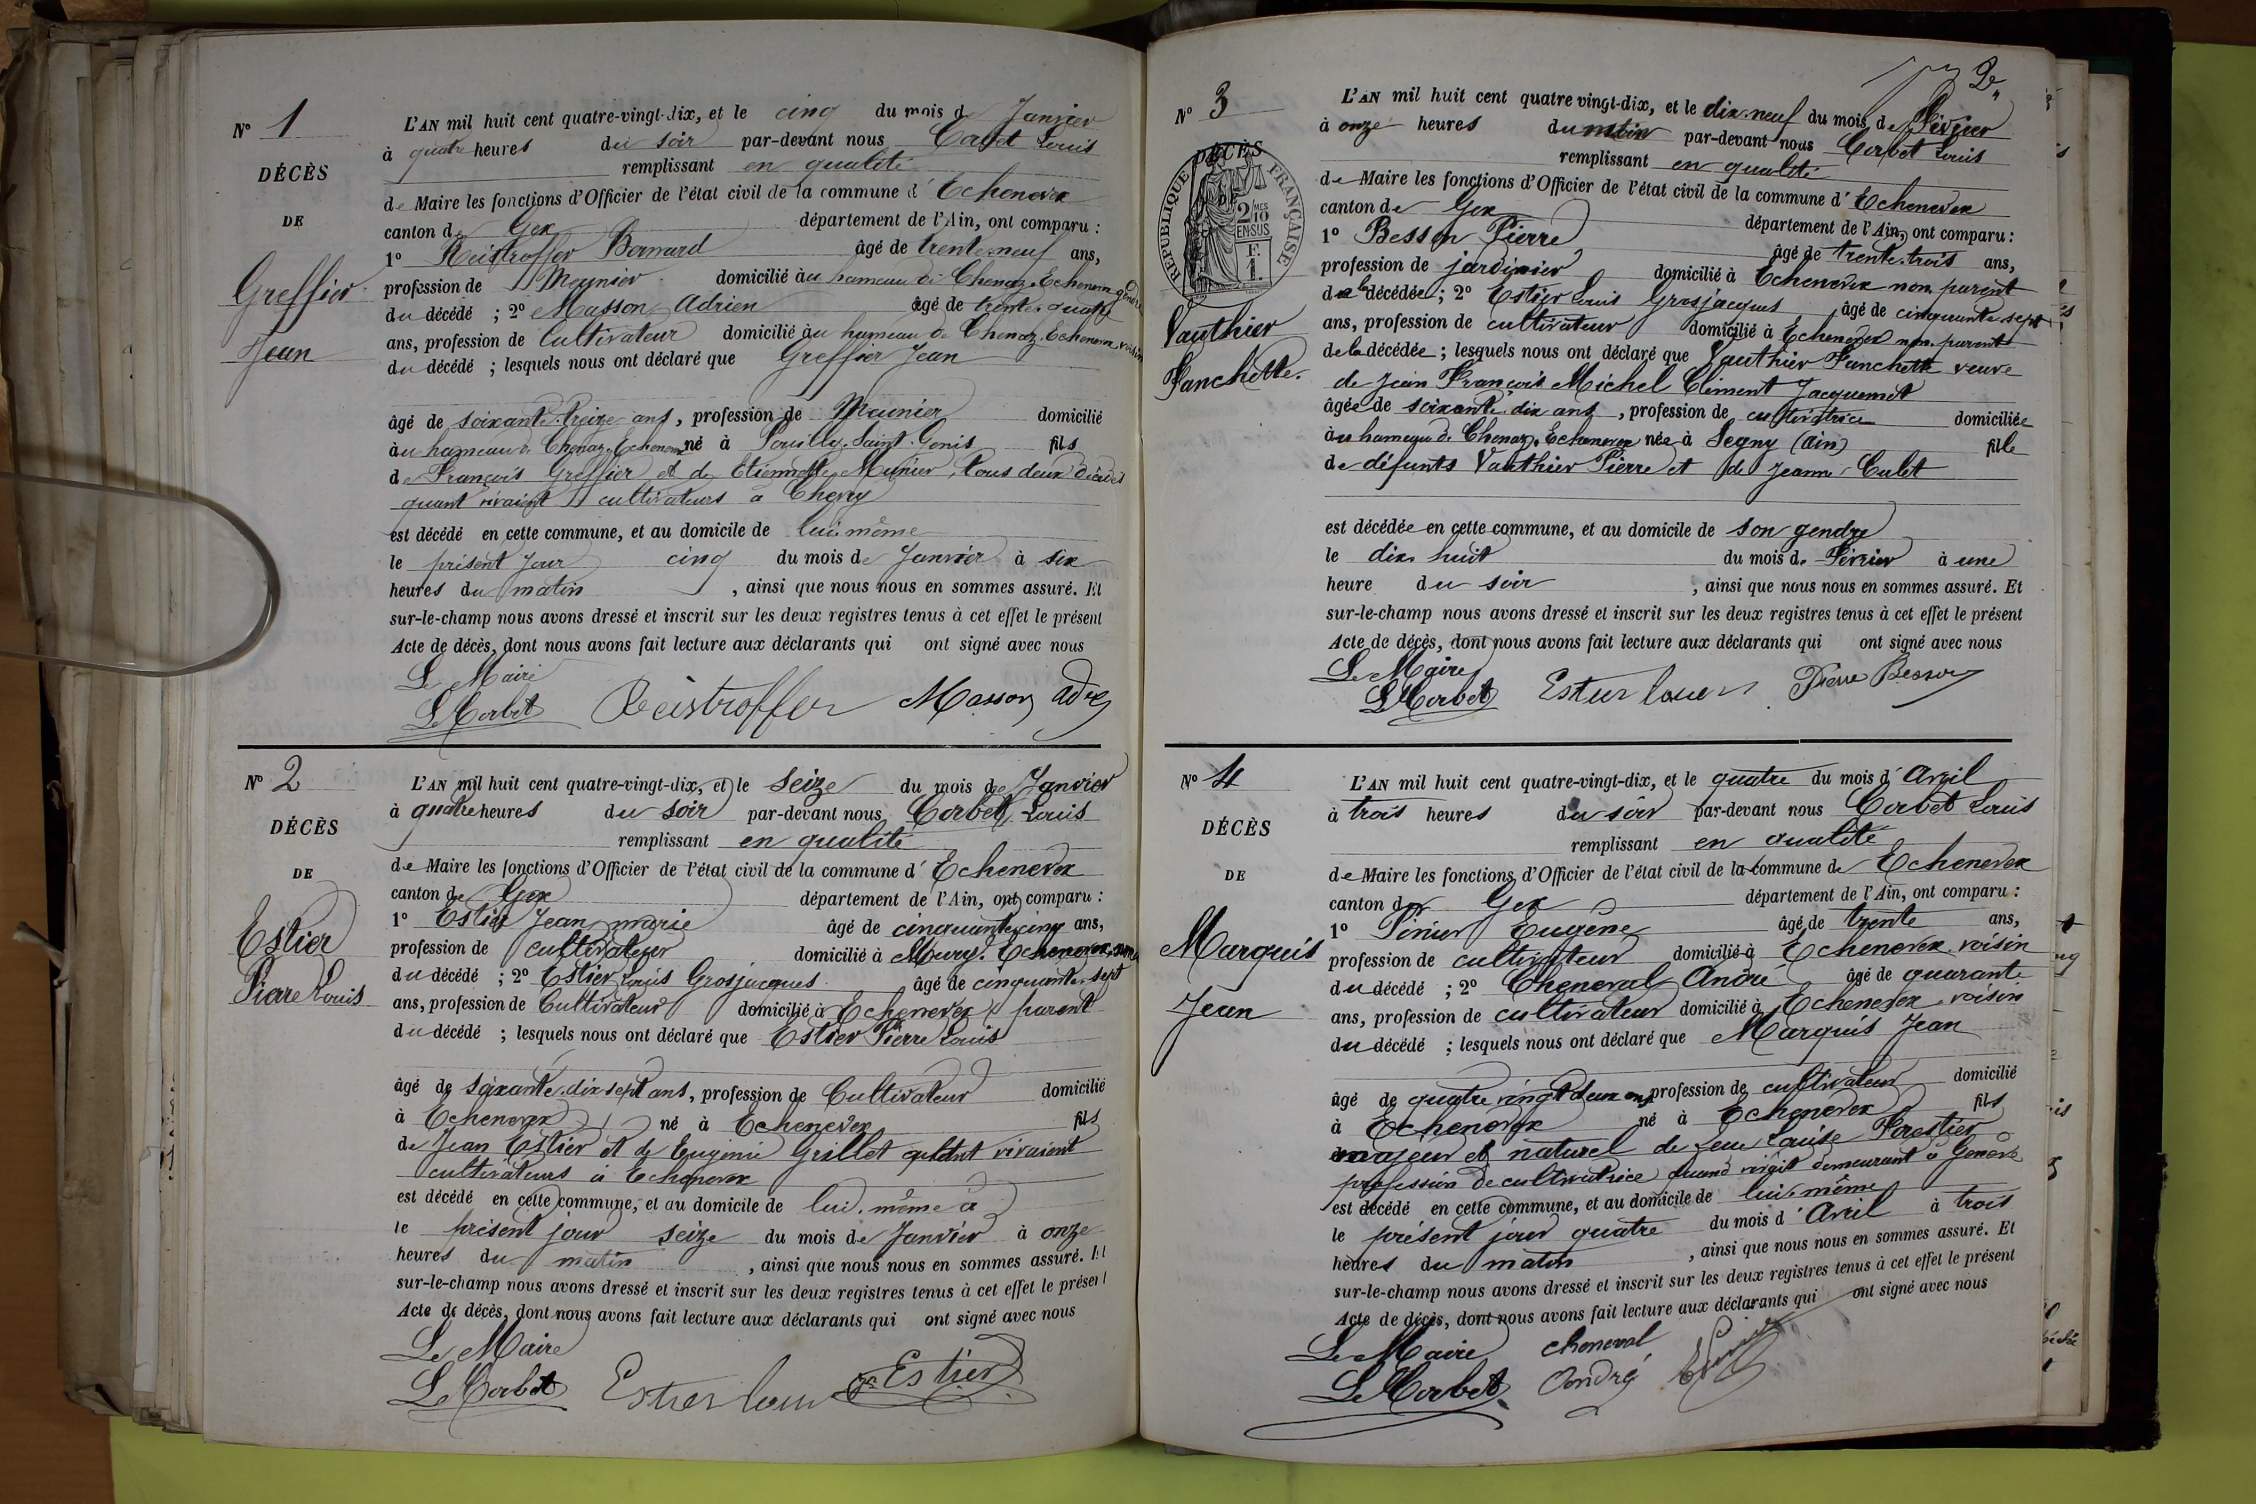 N° 1
DÉCÈS
DE
Greffier
Jean
L'AN mil huit cent quatre-vingt-dix, et le cinq du mois d Janvier
à quatre heures du soir par-devant nous Corbet Louis
remplissant en qualité
de Maire les fonctions d'Officier de l'état civil de la commune d' Echenevex
canton de Gex département de l'Ain, ont comparu :
1° Reistroffer Bernard âgé de trente-neuf ans,
profession de Meunier domicilié au hameau de Chenaz, Echenevex gendre
du décédé ; 2° Masson Adrien âgé de trente-quatre
ans, profession de Cultivateur domicilié au hameau de Chenaz, Echenevex voisin
du décédé ; lesquels nous ont déclaré que Greffier Jean
âgé de soixante-treize ans, profession de Meunier domicilié
au hameau de Chenaz, Echenevex né à Pouilly-Saint-Genis fils
de François Greffier et de Etiennette Munier, tous deux décédés
quant vivaient cultivateurs à Chevry
est décédé en cette commune, et au domicile de lui-même
le présent jour cinq du mois de Janvier à six
heures du matin , ainsi que nous nous en sommes assuré. Et
sur-le-champ nous avons dressé et inscrit sur les deux registres tenus à cet effet le présent
Acte de décès, dont nous avons fait lecture aux déclarants qui ont signé avec nous
Le Maire
L. Corbet Reistroffer Masson
N° 2
DÉCÈS
DE
Estier
Pierre Louis
L'AN mil huit cent quatre-vingt-dix, et le seize du mois de Janvier
à quatre heures du soir par-devant nous Corbet Louis
remplissant en qualité
de Maire les fonctions d'Officier de l'état civil de la commune d' Echenevex
canton de Gex département de l'Ain, ont comparu :
1° Estier Jean marie âgé de cinquante cinq ans,
profession de cultivateur domicilié à Mury. Echenevex
du décédé ; 2° Estier Louis Grosjacques âgé de cinquante-sept
ans, profession de Cultivateur domicilié à Echenevex parent
du décédé ; lesquels nous ont déclaré que Estier Pierre Louis
âgé de soixante-dix-sept ans, profession de Cultivateur domicilié
à Echenevex né à Echenevex fils
de Jean Estier et de Eugénie Grillet quant vivaient
cultivateurs à Echenevex
est décédé en cette commune, et au domicile de lui-même à
le présent jour seize du mois de Janvier à onze
heures du matin , ainsi que nous nous en sommes assuré. Et
sur-le-champ nous avons dressé et inscrit sur les deux registres tenus à cet effet le présent
Acte de décès, dont nous avons fait lecture aux déclarants qui ont signé avec nous
Le Maire
L. Corbet Estier Louis Estier
2
N° 3
DÉCÈS
RÉPUBLIQUE FRANÇAISE
2 MES
10
EN SUS
F.
1.
Vauthier
Fanchette.
L'AN mil huit cent quatre vingt-dix, et le dix-neuf du mois de Février
à onze heures du matin par-devant nous Corbet Louis
remplissant en qualité
de Maire les fonctions d'Officier de l'état civil de la commune d' Echenevex
canton de Gex département de l'Ain, ont comparu :
1° Besson Pierre âgé de trente-trois ans,
profession de jardinier domicilié à Echenevex non parent
de la décédée ; 2° Estier Louis Grosjacques âgé de cinquante-sept
ans, profession de cultivateur domicilié à Echenevex non parent
de la décédée ; lesquels nous ont déclaré que Vauthier Fanchette veuve
de Jean François Michel Climent Jacquemet
âgée de soixante-dix ans , profession de cultivatrice domiciliée
au hameau de Chenaz, Echenevex née à Segny (Ain) fille
de défunts Vauthier Pierre et de Jeanne Culet
est décédée en cette commune, et au domicile de son gendre
le dix-huit du mois de Février à une
heure du soir , ainsi que nous nous en sommes assuré. Et
sur-le-champ nous avons dressé et inscrit sur les deux registres tenus à cet effet le présent
Acte de décès, dont nous avons fait lecture aux déclarants qui ont signé avec nous
Le Maire
L. Corbet Estier Louis Pierre Besson
N° 4
DÉCÈS
DE
Marquis
Jean
L'AN mil huit cent quatre-vingt-dix, et le quatre du mois d' Avril
à trois heures du soir par-devant nous Corbet Louis
remplissant en qualité
de Maire les fonctions d'Officier de l'état civil de la commune de Echenevex
canton de Gex département de l'Ain, ont comparu :
1° Eugène âgé de trente ans,
profession de cultivateur domicilié à Echenevex voisin
du décédé ; 2° Cheneval André âgé de quarante
ans, profession de cultivateur domicilié à Echenevex, voisin
du décédé ; lesquels nous ont déclaré que Marquis Jean
âgé de quatre vingt deux ans profession de cultivateur domicilié
à Echenevex né à Echenevex fils
majeur et naturel de feue Louise Forestier
profession de cultivatrice quand vivait demeurant à Genève
est décédé en cette commune, et au domicile de lui-même
le présent jour quatre du mois d' Avril à trois
heures du matin , ainsi que nous nous en sommes assuré. Et
sur-le-champ nous avons dressé et inscrit sur les deux registres tenus à cet effet le présent
Acte de décès, dont nous avons fait lecture aux déclarants qui ont signé avec nous
Le Maire cheneval
L. Corbet André